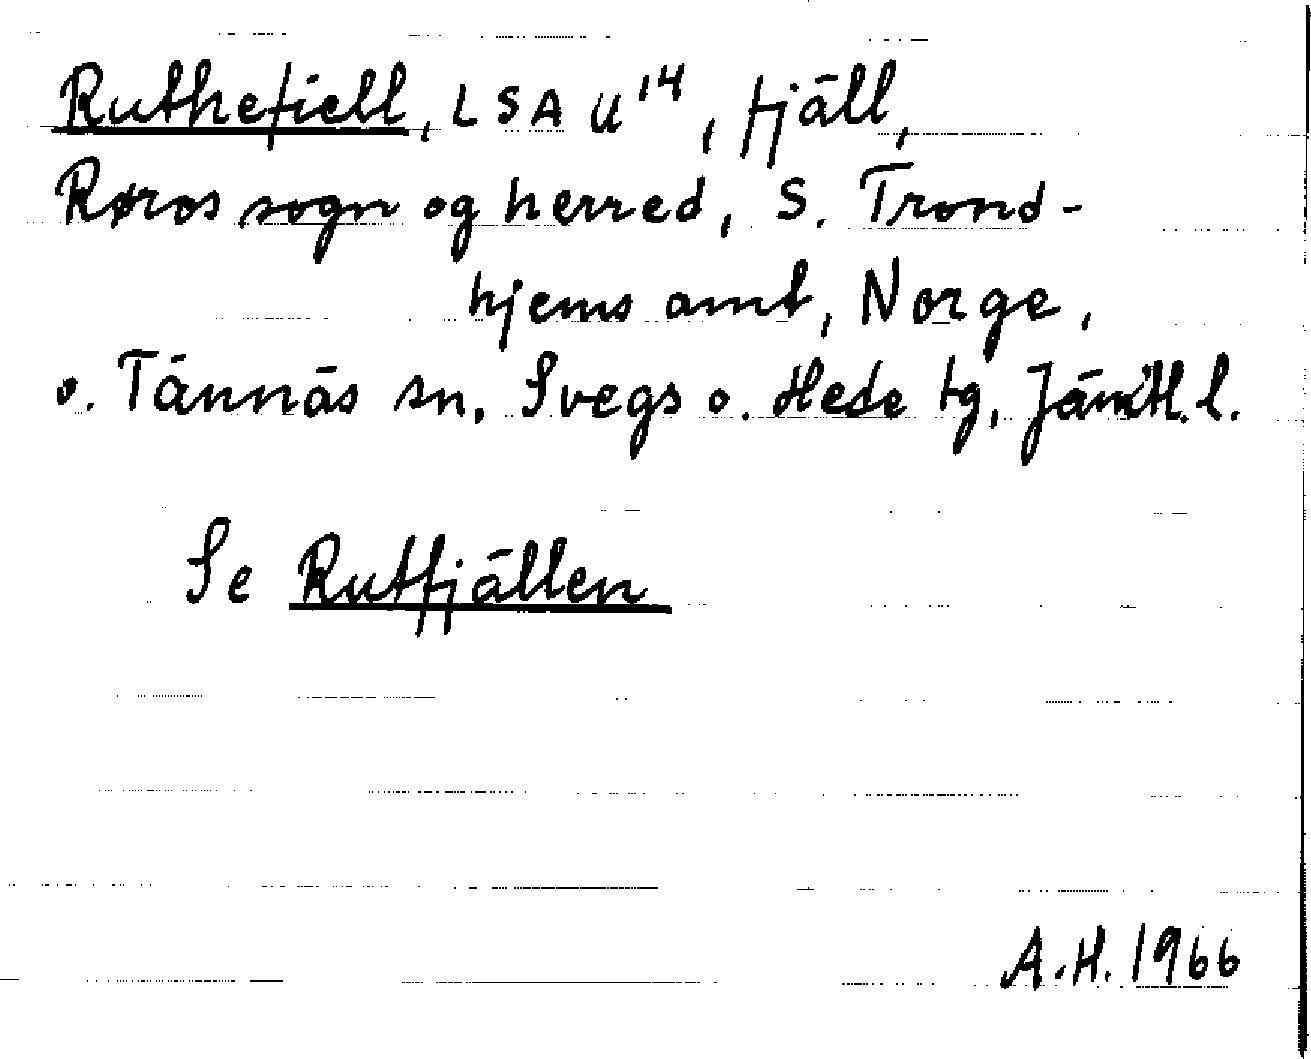 Ruthefiell, LSA U14, fjäll,
Røros sogn og herred, S. Trond-
hjems amt, Norge,
o. Tännäs sn, Svegs o. Hede tg, Jämtl. l.
Se Rutfjällen
A.H. 1966